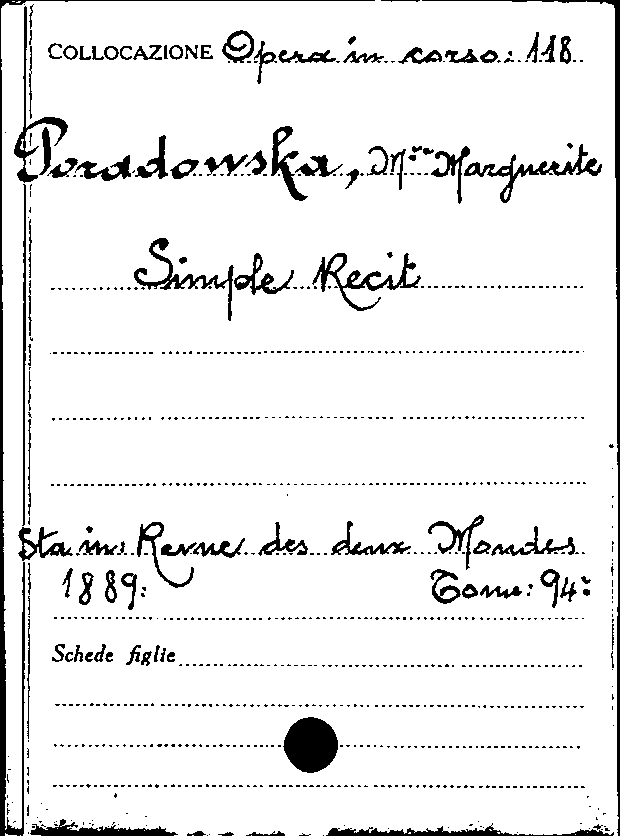 COLLOCAZIONE Opera in corso: 118
Poradowska, Mme Marguerite
Simple Recit
Sta in: Revue des deux Mondes
1889: Tome: 94º
Schede figlie